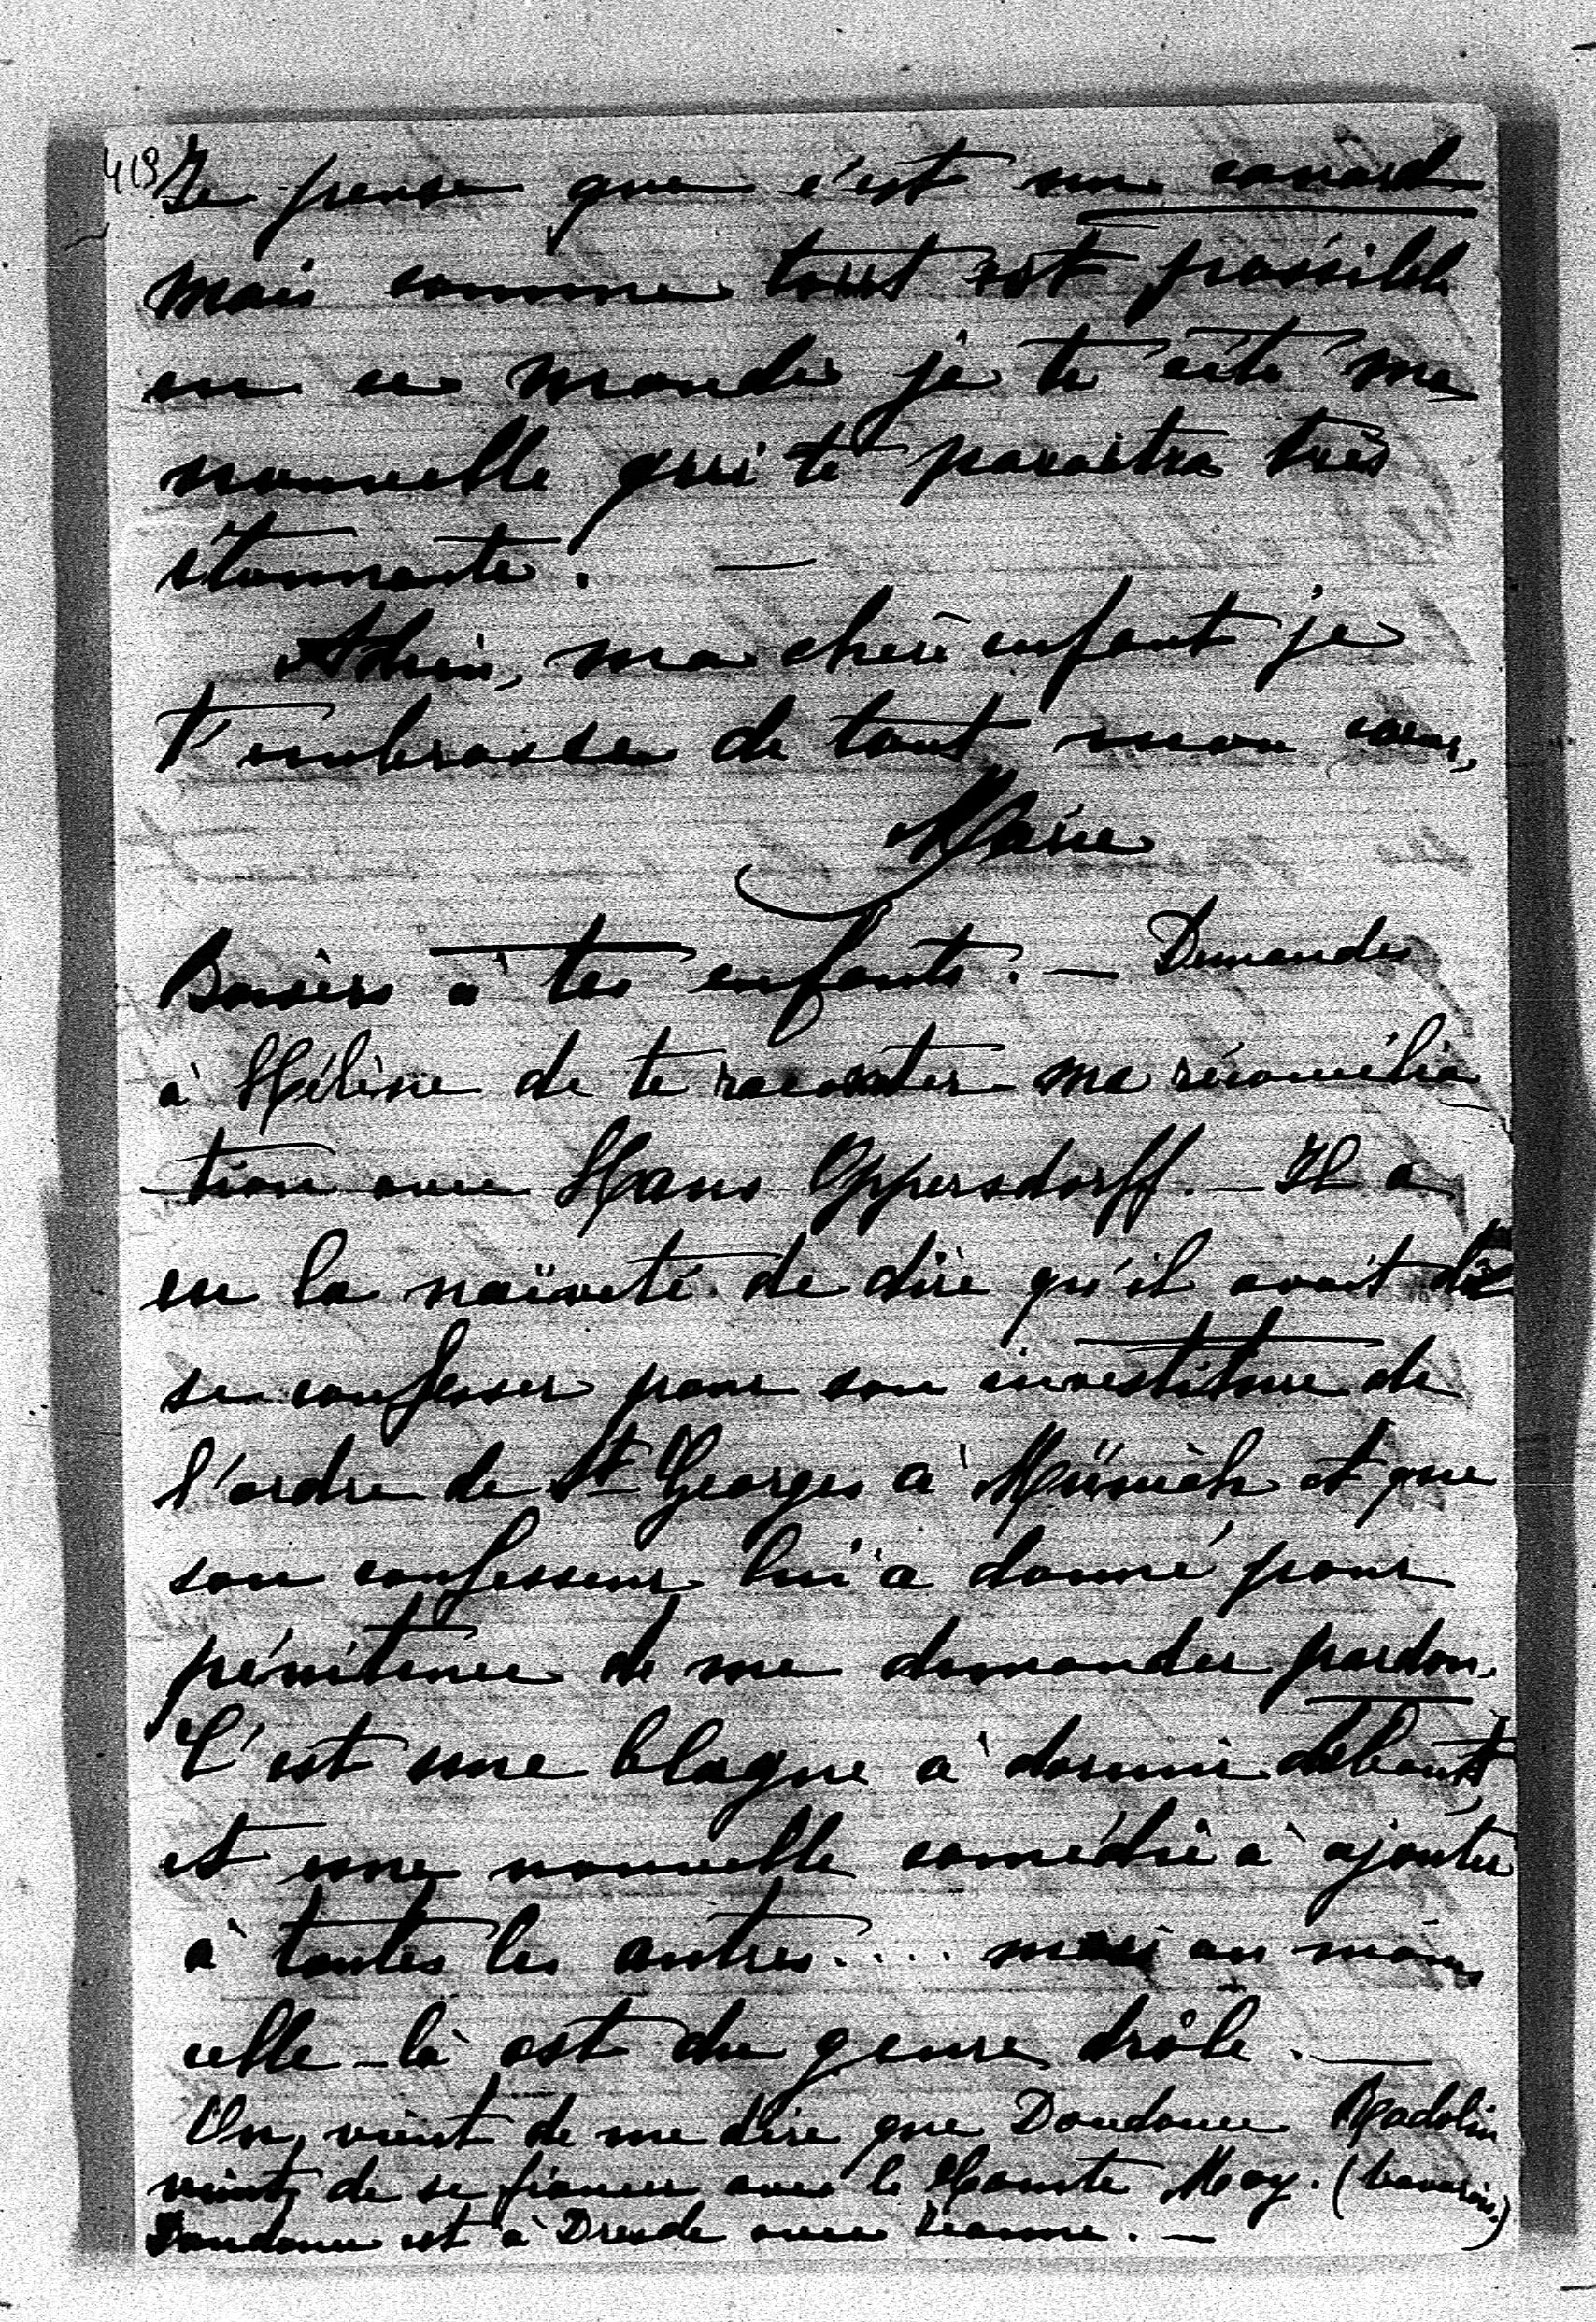 419 Je pense que c'est un canard
mais comme tout est possible
en ce monde je te cite ma
nouvelle qui te paraîtra très
étonnante. —
Adieu, ma chère enfant je
t'embrasse de tout mon cœur,
Marie
Baisers à tes enfants. — Demandes
à Hélène de te raconter ma réconcilia
tion avec Hans Oppersdorff. — Il a
eu la naïveté de dire qu'il avait dû
se confesser pour son investiture de
l'ordre de St Georges à Münich et que
son confesseur lui a donné pour
pénitence de me demander pardon.
C'est une blague à dormir debout
et une nouvelle comédie à ajouter
à toutes les autres.... mais au moins
celle-là est du genre drôle. —
On vient de me dire que Doudouce Radolin
vient de se fiancer avec le Comte Moy. (bavarois)
Doudouce est à Dresde avec Jeanne. —